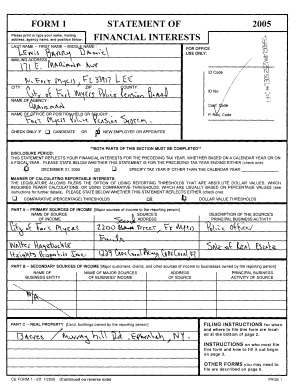 FORM 1 STATEMENT OF 2005
Please print or type your name, mailing address, agency name, and position below: FINANCIAL INTERESTS
LAST NAME -- FIRST NAME -- MIDDLE NAME : FOR OFFICE USE ONLY:
Lewis Barry Daniel
MAILING ADDRESS :
171 E. Mariana Ave
N. Fort Myers, FL 33917 LEE
CITY : ZIP : COUNTY :
ID Code
City of Fort Myers Police Pension Board
ID No.
NAME OF AGENCY :
Conf. Code
NAME OF OFFICE OR POSITION HELD OR SOUGHT :
P. Req. Code
Fort Myers Police Pension System
CHECK ONLY IF CANDIDATE OR NEW EMPLOYEE OR APPOINTEE
**BOTH PARTS OF THIS SECTION MUST BE COMPLETED**
DISCLOSURE PERIOD:
THIS STATEMENT REFLECTS YOUR FINANCIAL INTERESTS FOR THE PRECEDING TAX YEAR, WHETHER BASED ON A CALENDAR YEAR OR ON A FISCAL YEAR. PLEASE STATE BELOW WHETHER THIS STATEMENT IS FOR THE PRECEDING TAX YEAR ENDING EITHER (check one):
DECEMBER 31, 2005 OR SPECIFY TAX YEAR IF OTHER THAN THE CALENDAR YEAR:
MANNER OF CALCULATING REPORTABLE INTERESTS:
THE LEGISLATURE ALLOWS FILERS THE OPTION OF USING REPORTING THRESHOLDS THAT ARE ABSOLUTE DOLLAR VALUES, WHICH REQUIRES FEWER CALCULATIONS, OR USING COMPARATIVE THRESHOLDS, WHICH ARE USUALLY BASED ON PERCENTAGE VALUES (see instructions for further details). PLEASE STATE BELOW WHETHER THIS STATEMENT REFLECTS EITHER (check one):
COMPARATIVE (PERCENTAGE) THRESHOLDS OR DOLLAR VALUE THRESHOLDS
PART A -- PRIMARY SOURCES OF INCOME [Major sources of income to the reporting person]
NAME OF SOURCE OF INCOME SOURCE'S ADDRESS DESCRIPTION OF THE SOURCE'S PRINCIPAL BUSINESS ACTIVITY
Second
City of Fort Myers 2200 Street, Ft Myers Police Officer
Florida
Sale of Real Estate
PART B -- SECONDARY SOURCES OF INCOME [Major customers, clients, and other sources of income to businesses owned by the reporting person]
NAME OF BUSINESS ENTITY NAME OF MAJOR SOURCES OF BUSINESS' INCOME ADDRESS OF SOURCE PRINCIPAL BUSINESS ACTIVITY OF SOURCE
N/A
PART C -- REAL PROPERTY [Land, buildings owned by the reporting person]
Murray Hill Rd. NY.
FILING INSTRUCTIONS for when and where to file this form are located at the bottom of page 2.
INSTRUCTIONS on who must file this form and how to fill it out begin on page 3.
OTHER FORMS you may need to file are described on page 6.
CE FORM 1 - Eff. 1/2006 (Continued on reverse side) PAGE 1